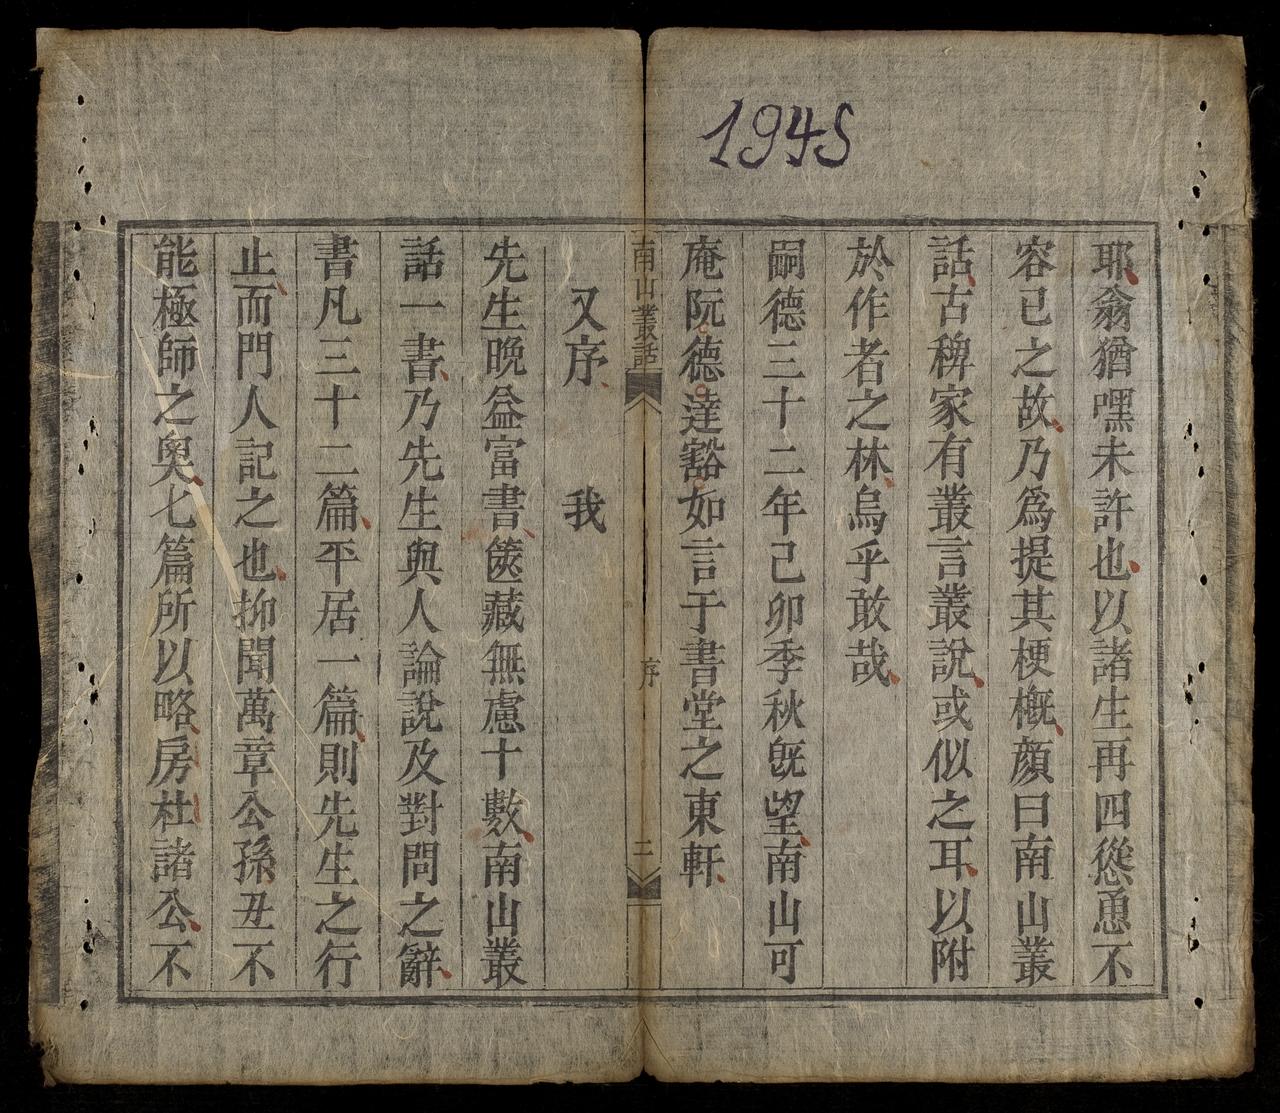 1945
耶翁猶嘿未許也以諸生再四慫恿不
容已之故乃爲提其梗槪顔曰南山叢
話古稗家有叢言叢說或似之耳以附
於作者之林烏乎敢哉
嗣德三十二年己卯季秋旣望南山可
庵阮德達豁如言于書堂之東軒
南山叢話
序
二
又序
我
先生晚益富書篋藏無慮十數南山叢
話一書乃先生與人論說及對問之辭
書凡三十二篇平居一篇則先生之行
止而門人記之也抑聞萬章公孫丑不
能極師之奧七篇所以略房杜諸公不